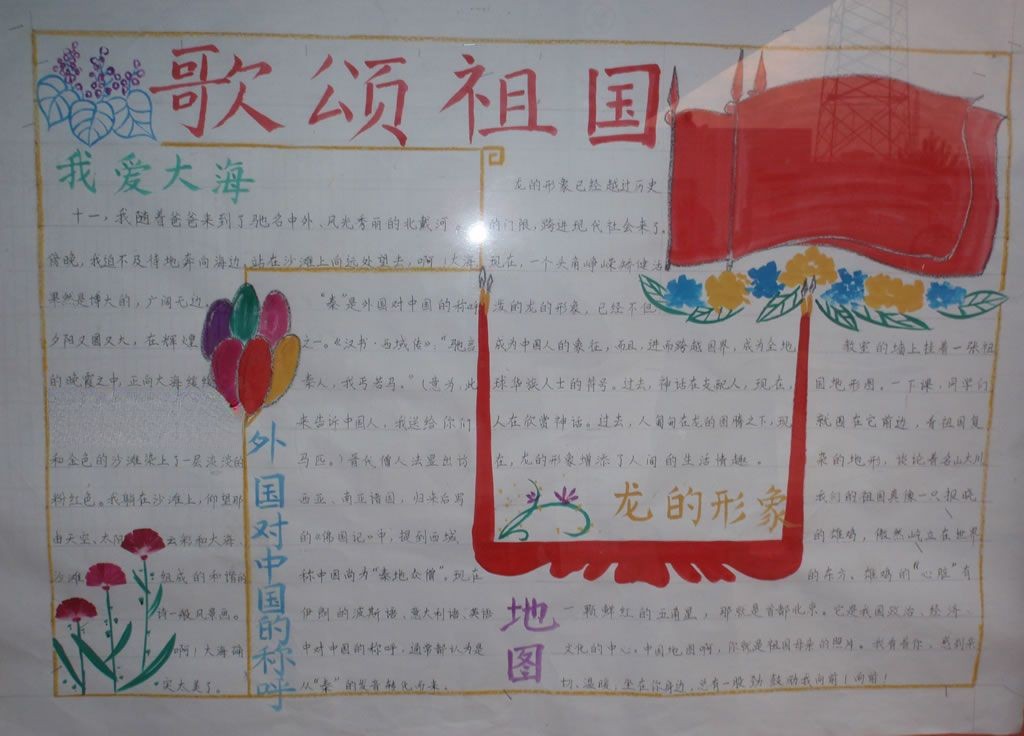 歌颂祖国
我爱大海
十一，我随着爸爸来到了驰名中外、风光秀丽的北戴河。
傍晚，我迫不及待地奔向海边，站在沙滩上向远处望去，啊！大海
果然是博大的，广阔无边。
夕阳又圆又大，在辉煌
的晚霞之中，正向大海缓缓
和金色的沙滩染上了一层淡淡的
粉红色。我躺在沙滩上，仰望那
由天空、太阳、云彩和大海、
沙滩组成的和谐的
诗一般风景画。
啊！大海确
实太美了。
外国对中国的称呼
“秦”是外国对中国的称呼
之一。《汉书·西域传》：“驰言
秦人，我丐若马。”（意为，此
来告诉中国人，我送给你们
马匹。）晋代僧人法显出访
西亚、南亚诸国，归来后写
的《佛国记》中，提到西域
称中国尚为“秦地众僧”。现在
伊朗的波斯语、意大利语、英语
中对中国的称呼，通常都认为是
从“秦”的发音转化而来。
龙的形象已经越过历史
的门限，跨进现代社会来了。
现在，一个头角峥嵘矫健活
泼的龙的形象，已经不但
成为中国人的象征，而且，进而跨越国界，成为全地
球华族人士的符号。过去，神话在支配人，现在，
人在欣赏神话。过去，人匍匐在龙的图腾之下，现
在，龙的形象增添了人间的生活情趣。
龙的形象
地图
教室的墙上挂着一张祖
国地形图，一下课，同学们
就围在它前边，看祖国复
杂的地形，谈论着名山大川
我们的祖国真像一只报晓
的雄鸡，傲然屹立在世界
的东方。雄鸡的“心脏”有
一颗鲜红的五角星，那就是首都北京。它是我国政治、经济、
文化的中心。中国地图啊，你就是祖国母亲的照片。我看着你，感到亲
切、温暖，坐在你身边，总有一股劲鼓励我向前！向前！